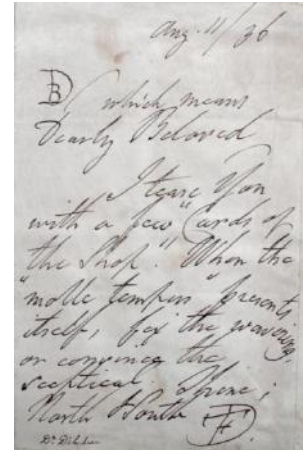 Aug. 11/36
DB which means
Dearly Beloved
I leave You
with a few "Cards of
the Shop". When the
"molle tempus" presents
itself, fix the wavering,
or convince the
sceptical.
North South